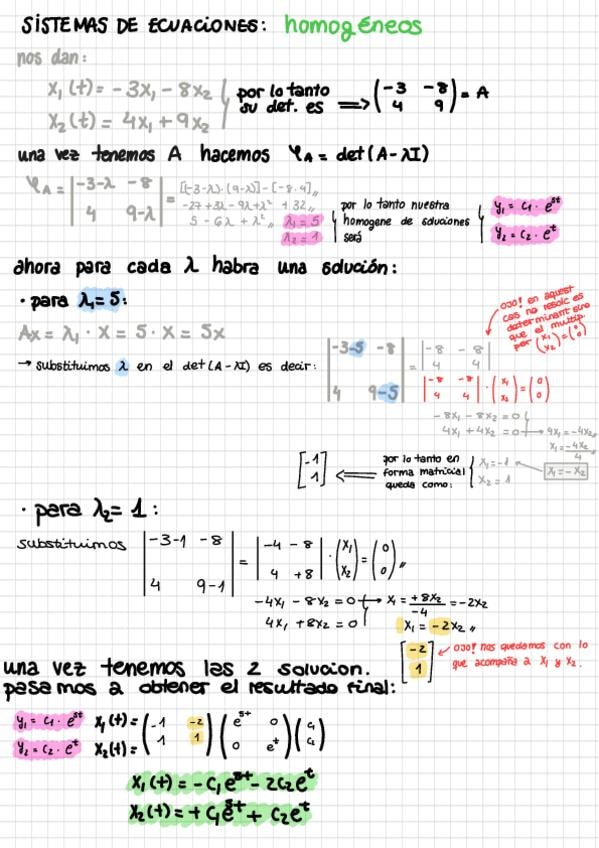 SISTEMAS DE ECUACIONES: homogéneos
nos dan:
x₁(t) = -3x₁ - 8x₂
x₂(t) = 4x₁ + 9x₂
por lo tanto
su det. es ⟹ (-3 -8
4 9) = A
una vez tenemos A hacemos φA = det(A-λI)
φA = |-3-λ -8
4 9-λ| =
[(-3-λ)·(9-λ)] - [-8·4],,
-27+3λ-9λ+λ² + 32,,
5 - 6λ + λ²,, λ₁=5
λ₂=1
por lo tanto nuestra
homogene de soluciones
será
y₁ = c₁· e^5t
y₂ = c₂· e^t
ahora para cada λ habra una solución:
· para λ₁=5:
Ax = λ₁ · X = 5 · X = 5x
→ substituimos λ en el det(A-λI) es decir:
|-3-5 -8
4 9-5| = |-8 -8
4 4|
OJO! en aquest
cas no resolc es
determinant sino
que el multip.
por (x₁ x₂) = (0 0)
|-8 -8
4 4| · (x₁ x₂) = (0 0)
-8x₁ - 8x₂ = 0
4x₁ + 4x₂ = 0 → 4x₁ = -4x₂
x₁ = -4x₂/4
x₁ = -x₂
por lo tanto en
forma matricial
queda como:
x₁ = -1
x₂ = 1
[-1
1] ⟸
· para λ₂ = 1:
substituimos |-3-1 -8
4 9-1| = |-4 -8
4 +8| · (x₁ x₂) = (0 0),,
-4x₁ - 8x₂ = 0 → x₁ = +8x₂/-4 = -2x₂
4x₁ + 8x₂ = 0
x₁ = -2x₂,,
[-2
1] ← OJO! nos quedamos con lo
que acompaña a x₁ y x₂.
una vez tenemos las 2 solucion.
pasamos a obtener el resultado final:
y₁ = c₁· e^5t
y₂ = c₂· e^t
x₁(t) =
x₂(t) =
(-1 -2
1 1) (e^5t 0
0 e^t) (c₁
c₂)
x₁(t) = -c₁e^5t - 2c₂e^t
x₂(t) = +c₁e^5t + c₂e^t